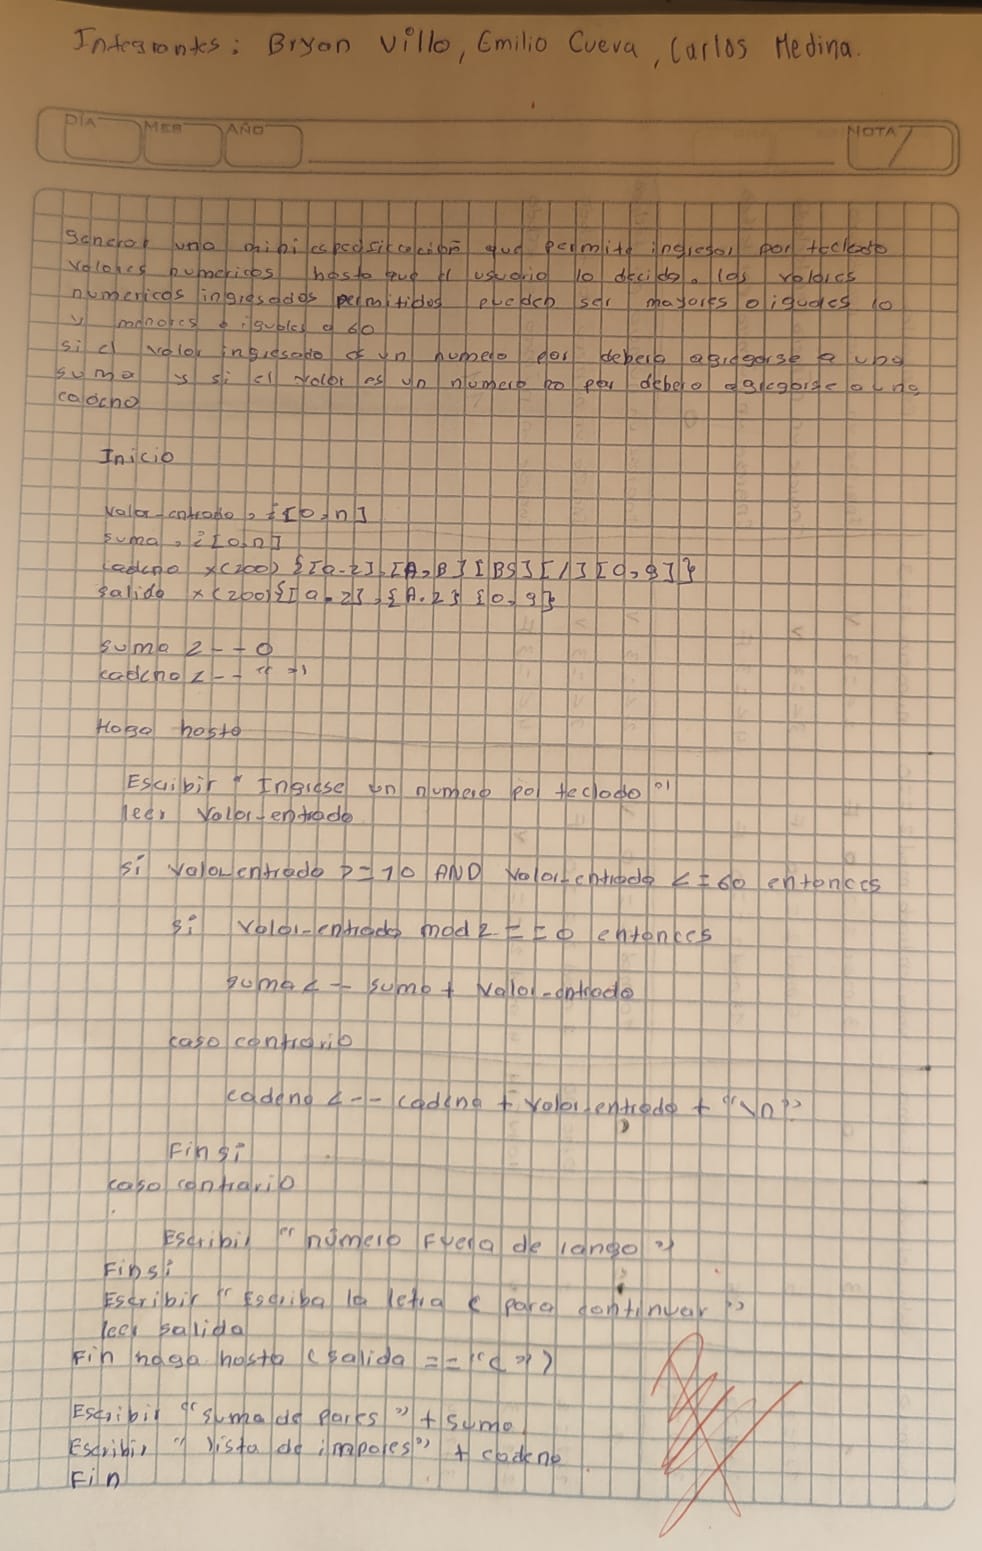 Integrantes: Bryan Villo, Emilio Cueva, Carlos Medina.
DÍA MES AÑO NOTA
Generar una mini especificación que permita ingresar por teclado
valores numericos hasta que el usuario lo decida. los valores
numericos ingresados permitidos pueden ser mayores o iguales 10
y menores o iguales a 60
si el valor ingresado es un numero par debera agregarse a una
suma y si el valor es un numero no par debera agregarse a una
cadena
Inicio
valor-entrada, i[0,n]
suma, i[0,n]
cadena x(200) {[a-z],[A,B][BS][/][0,9]}
salida x(200){[a-z],{A-Z}{0,9}
suma <--0
cadena <-- " "
Haga hasta
Escribir "Ingrese un numero por teclado"
leer valor-entrada
si valor-entrada >=10 AND valor-entrada <=60 entonces
si valor-entrada mod 2 == 0 entonces
suma <- suma + valor-entrada
caso contrario
cadena <-- cadena + valor-entrada + "\n"
Fin si
caso contrario
Escribir "número Fuera de rango"
Finsi
Escribir "Escriba la letra c para continuar"
leer salida
Fin haga hasta (salida == "c")
Escribir "suma de pares" + suma
Escribir "lista de impares" + cadena
Fin